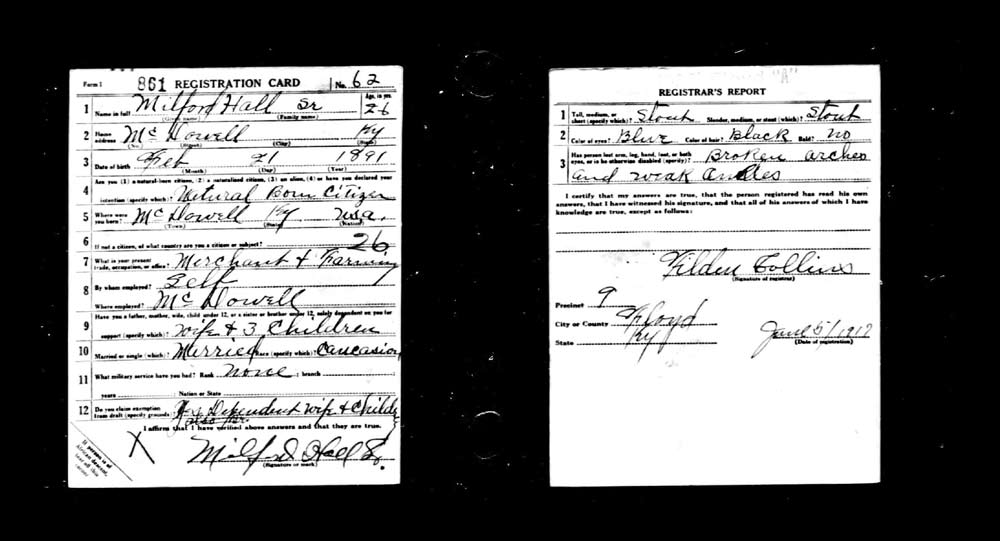 Form 1 861 REGISTRATION CARD No. 62
1 Name in full Milford Hall Sr Age, in yrs. 26
(Given name) (Family name)
2 Home address McDowell Ky
(No.) (Street) (City) (State)
3 Date of birth Feb 21 1891
(Month) (Day) (Year)
4 Are you (1) a natural-born citizen, (2) a naturalized citizen, (3) an alien, (4) or have you declared your
intention (specify which)? Netural Born Citizen
5 Where were you born? McDowell Ky usa.
(Town) (State) (Nation)
6 If not a citizen, of what country are you a citizen or subject? 26
7 What is your present trade, occupation, or office? Merchant & Farming
8 By whom employed? Self
Where employed? McDowell
9 Have you a father, mother, wife, child under 12, or a sister or brother under 12, solely dependent on you for
support (specify which)? Wife & 3 Children
10 Married or single (which)? Merried Race (specify which)? Caucasion
11 What military service have you had? Rank None ; branch
years Nation or State
12 Do you claim exemption from draft (specify grounds)? Dependent Wife & Childr
I affirm that I have verified above answers and that they are true.
X Milford Hall Sr.
(Signature or mark)
If person is of
African descent,
tear off this
corner
"A"
REGISTRAR'S REPORT
1 Tall, medium, or short (specify which)? Stout Slender, medium, or stout (which)? Stout
2 Color of eyes? Blue Color of hair? Black Bald? No
3 Has person lost arm, leg, hand, foot, or both
eyes, or is he otherwise disabled (specify)? Broken arches
and weak Ancles
I certify that my answers are true, that the person registered has read his own
answers, that I have witnessed his signature, and that all of his answers of which I have
knowledge are true, except as follows:
Tilden Collins
(Signature of registrar)
Precinct 9
City or County Floyd
State Ky
June 5/1917
(Date of registration)